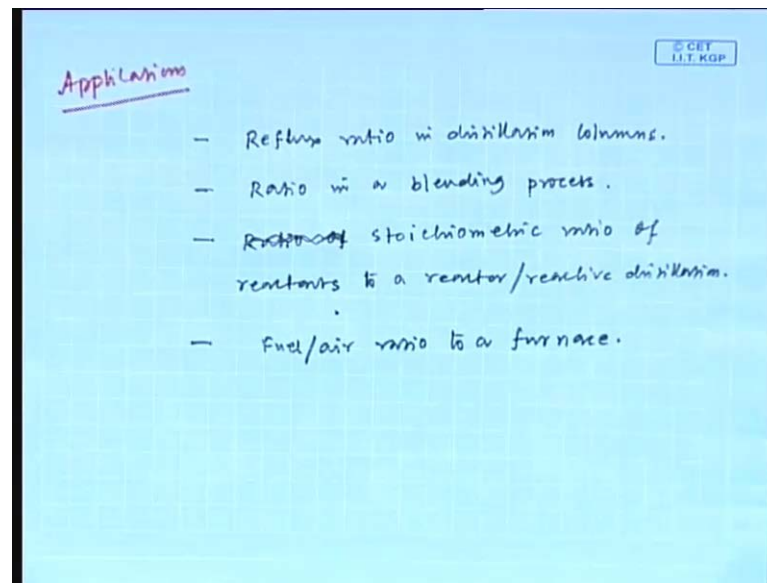 © CET
I.I.T. KGP
Applications
- Reflux ratio in distillation columns.
- Ratio in a blending process.
- Ratio of stoichiometric ratio of
reactants to a reactor/reactive distillation.
- Fuel/air ratio to a furnace.